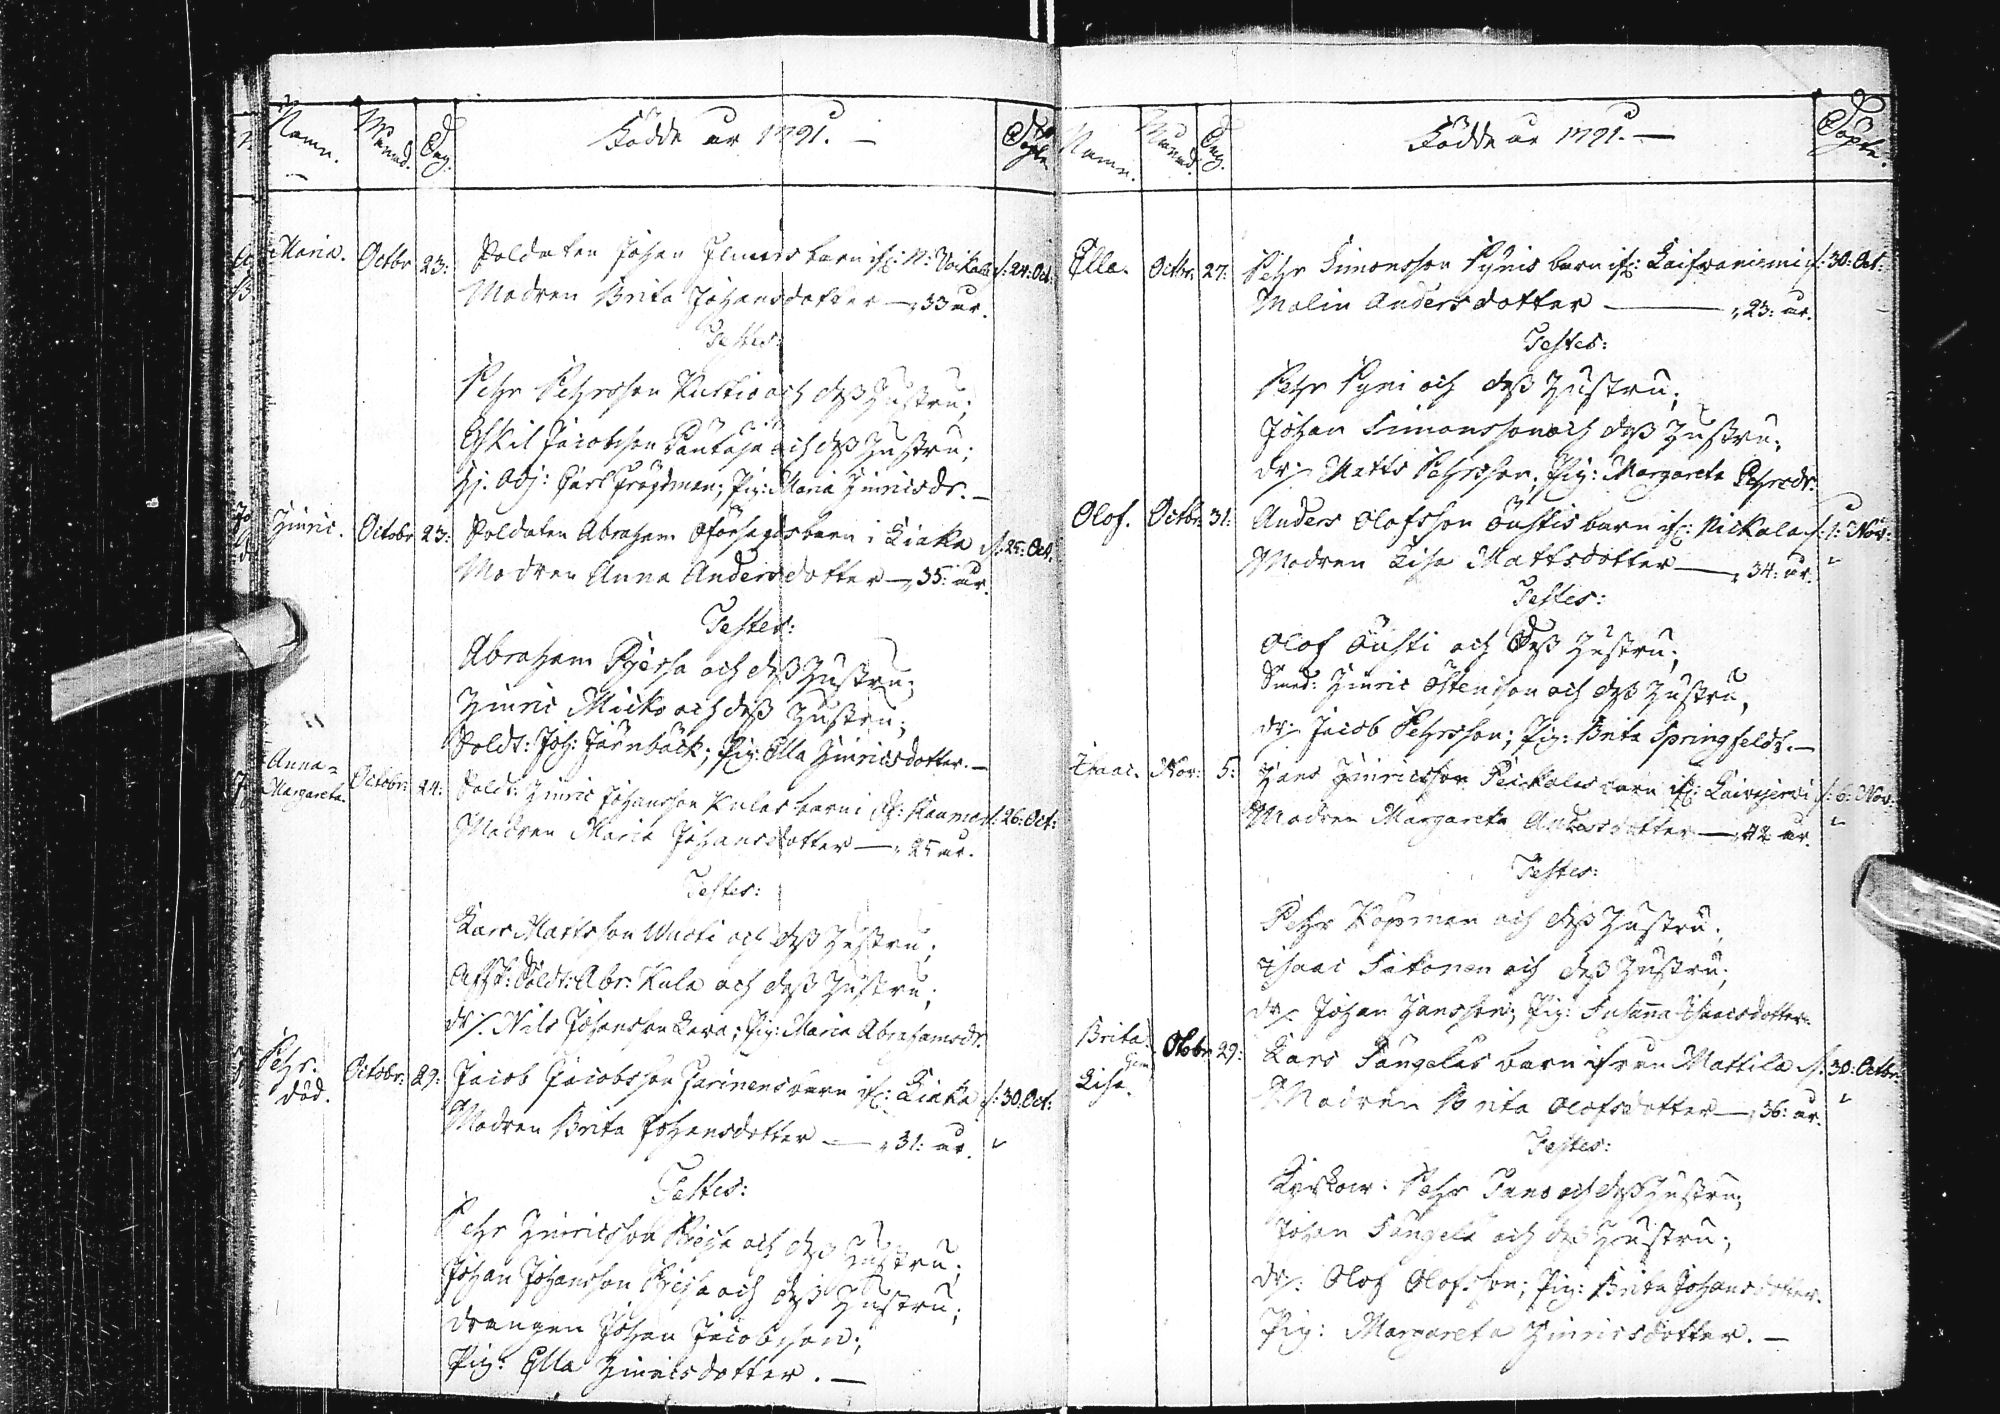 Namn. Månad. Dag. Födde år 1791. — Döpte
Maria. Octbr 23: Soldaten Johan Ilmars barn ifr: N: d. 24: Oct:
Modren Brita Johansdotter — 33 år.
Testes:
Pehr Pehrsson och dess Hustru;
Eskil Jacobsson Pantaja och dess Hustru;
Hr. Adj: Carl Frögdman; Pig: Maria Hinricsdr. —
Hinric. Octobr 23: Soldaten Abraham barn i Kiaka d. 25: Oct.
Modren Anna Andersdotter — 35: år.
Testes:
Abraham och dess Hustru;
Hinric Micko och dess Hustru;
Soldt: Joh: Jernbäck; Pig: Ella Hinricsdotter. —
Anna=
Margareta. Octobr: 24: Soldt: Hinric Johansson Kulas barn i Raumo d: 26: Oct:
Modren Maria Johansdotter — 25 år.
Testes:
Lars Mattsson och dess Hustru;
Afsk: Soldt: Abr: Kula och dess Hustru;
dr: Nils Johansson Lava; Pig: Maria Abrahamsdr.
Pehr.
död. Octobr: 29: Jacob Jacobsson barn ifr: Kiaka d: 30. Oct:
Modren Brita Johansdotter — 31: år.
Testes:
Pehr Hinricsson och dess Hustru;
Johan Johansson och dess Hustru;
drängen Johan Jacobsson;
Pig: Ella Hinricsdotter. —
Namn. Månad. Dag. Födde år 1791. — Döpte.
Ella. Octbr: 27: Pehr Simonsson Pynis barn ifr: Laifvaniemi d: 30: Oct:
Malin Andersdotter — 23: år.
Testes:
Pehr Pyni och dess Hustru;
Johan Simonsson och dess Hustru;
dr: Matts Pehrsson; Pig: Margareta Pehrsdr.
Olof. Octbr: 31: Anders Olofsson Öustis barn ifr: Nickala d: 1: Nov:
Modren Lisa Mattsdotter — 34: år.
Testes:
Olof Öusti och Dess Hustru;
Smed: Hinric Östensson och dess Hustru,
dr: Jacob Pehrsson; Pig: Brita Springfeldt. —
Isaac. Nov: 5: Hans Hinricsson Peickolas barn ifr: Laivajervi d: 6: Nov:
Modren Margareta Andersdotter — 42 år.
Testes:
Pehr Kopman och dess Hustru;
Isaac Säkonen och dess Hustru;
dr: Johan Hansson; Pig: Susanna Isaacsdotter.
Brita
Lisa. Otobr 29: Lars Sangelas barn ifrån Mattila d: 30: Octbr:
Modren Brita Olofsdotter — 36: år.
Testes:
Kyrkow: Pehr Tano och dess Hustru;
Johan Sangela och dess Hustru;
dr: Olof Olofsson; Pig: Brita Johansdotter.
Pig: Margareta Hinricsdotter. —